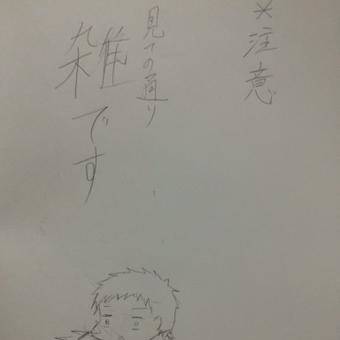 ※注意
見ての通り
雑です